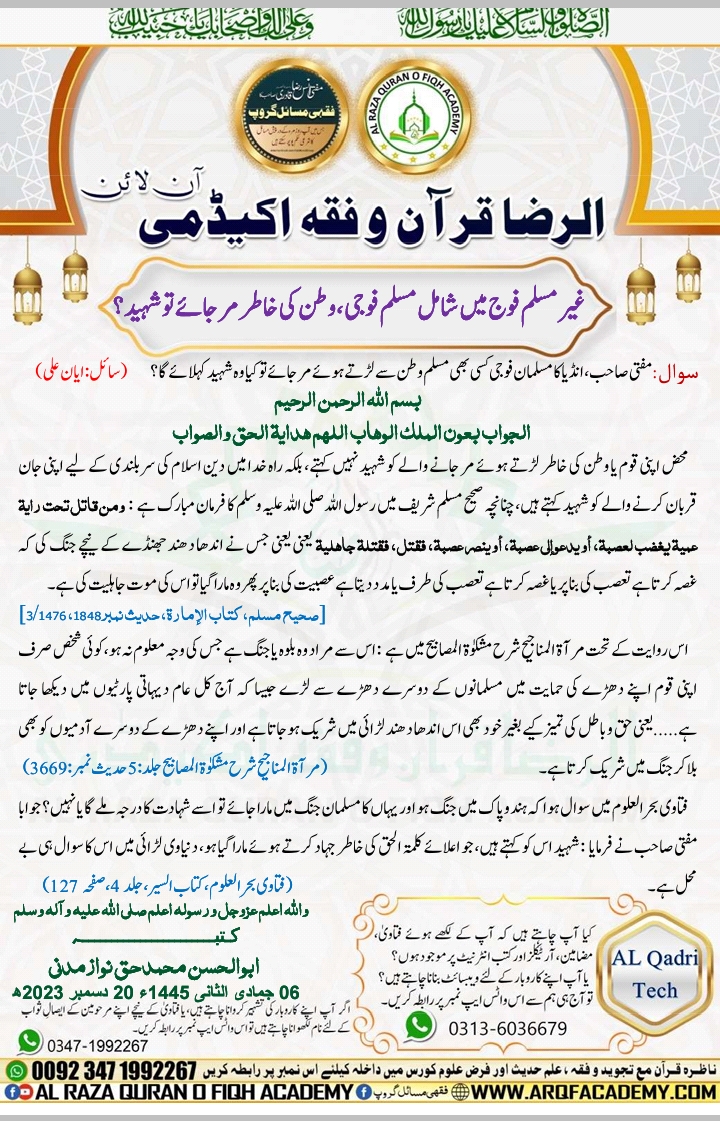 الصلوٰۃ والسلام علیک یارسول اللہ
وعلیٰ الک واصحابک یا حبیب اللہ
مفتی انس رضا قادری صاحب کا
فقہی مسائل گروپ
AL RAZA QURAN O FIQH ACADEMY
الرضا قرآن و فقہ اکیڈمی
آن لائن
غیر مسلم فوج میں شامل مسلم فوجی، وطن کی خاطر مر جائے تو شہید؟
سوال: مفتی صاحب، انڈیا کا مسلمان فوجی کسی بھی مسلم وطن سے لڑتے ہوئے مر جائے تو کیا وہ شہید کہلائے گا؟ (سائل: ایان علی)
بسم اللہ الرحمن الرحیم
الجواب بعون الملك الوھاب اللھم ھدایة الحق و الصواب
محض اپنی قوم یا وطن کی خاطر لڑتے ہوئے مر جانے والے کو شہید نہیں کہتے، بلکہ راہ خدا میں دین اسلام کی سربلندی کے لیے اپنی جان
قربان کرنے والے کو شہید کہتے ہیں، چنانچہ صحیح مسلم شریف میں رسول اللہ صلی اللہ علیہ وسلم کا فرمان مبارک ہے: ومن قاتل تحت راية
عمية يغضب لعصبة، أو يدعو إلى عصبة، أو ينصر عصبة، فقتل، فقتلة جاهلية یعنی یعنی جس نے اندھا دھند جھنڈے کے نیچے جنگ کی کہ
غصہ کرتا ہے تعصب کی بنا پر یا غصہ کرتا ہے تعصب کی طرف یا مدد دیتا ہے عصبیت کی بنا پر پھر وہ مارا گیا تو اس کی موت جاہلیت کی ہے۔
[صحيح مسلم، كتاب الإمارة، حدیث نمبر 1848، 3/1476]
اس روایت کے تحت مرآۃ المناجیح شرح مشکوٰۃ المصابیح میں ہے: اس سے مراد وہ بلوہ یا جنگ ہے جس کی وجہ معلوم نہ ہو، کوئی شخص صرف
اپنی قوم اپنے دھڑے کی حمایت میں مسلمانوں کے دوسرے دھڑے سے لڑے جیسا کہ آج کل عام دیہاتی پارٹیوں میں دیکھا جاتا
ہے.....یعنی حق و باطل کی تمیز کیے بغیر خود بھی اس اندھا دھند لڑائی میں شریک ہو جاتا ہے اور اپنے دھڑے کے دوسرے آدمیوں کو بھی
بلا کر جنگ میں شریک کرتا ہے۔ (مرآۃ المناجیح شرح مشکوٰۃ المصابیح جلد:5 حدیث نمبر:3669)
فتاوی بحر العلوم میں سوال ہوا کہ ہند و پاک میں جنگ ہو اور یہاں کا مسلمان جنگ میں مارا جائے تو اسے شہادت کا درجہ ملے گا یا نہیں؟ جوابا
مفتی صاحب نے فرمایا: شہید اس کو کہتے ہیں، جو اعلائے کلمۃ الحق کی خاطر جہاد کرتے ہوئے مارا گیا ہو، دنیاوی لڑائی میں اس کا سوال ہی بے
محل ہے۔ (فتاوی بحر العلوم، کتاب السیر، جلد 4، صفحہ 127)
واللہ اعلم عزوجل و رسولہ اعلم صلی اللہ علیہ و آلہ وسلم
کتبــــــــــہ
ابوالحسن محمد حق نواز مدنی
06 جمادی الثانی 1445ء 20 دسمبر 2023ھ
اگر آپ اپنے کاروبار کی تشہیر کروانا چاہتے ہیں، یا فتاویٰ کے نیچے اپنے مرحومین کے ایصال ثواب
کے لئے نام لکھوانا چاہتے ہیں تو اس واٹس ایپ نمبر پر رابطہ کریں۔
0347-1992267
کیا آپ چاہتے ہیں کہ آپ کے لکھے ہوئے فتاویٰ،
مضامین، آرٹیکلز اور کتب انٹرنیٹ پر موجود ہوں؟
یا آپ اپنے کاروبار کے لئے ویب سائٹ بنانا چاہتے ہیں؟
تو آج ہی ہم سے اس واٹس ایپ نمبر پر رابطہ کریں۔
0313-6036679
AL Qadri
Tech
ناظرہ قرآن مع تجوید و فقہ، علم حدیث اور فرض علوم کورس میں داخلہ کیلئے اس نمبر پر رابطہ کریں 0092 347 1992267
AL RAZA QURAN O FIQH ACADEMY فقہی مسائل گروپ WWW.ARQFACADEMY.COM